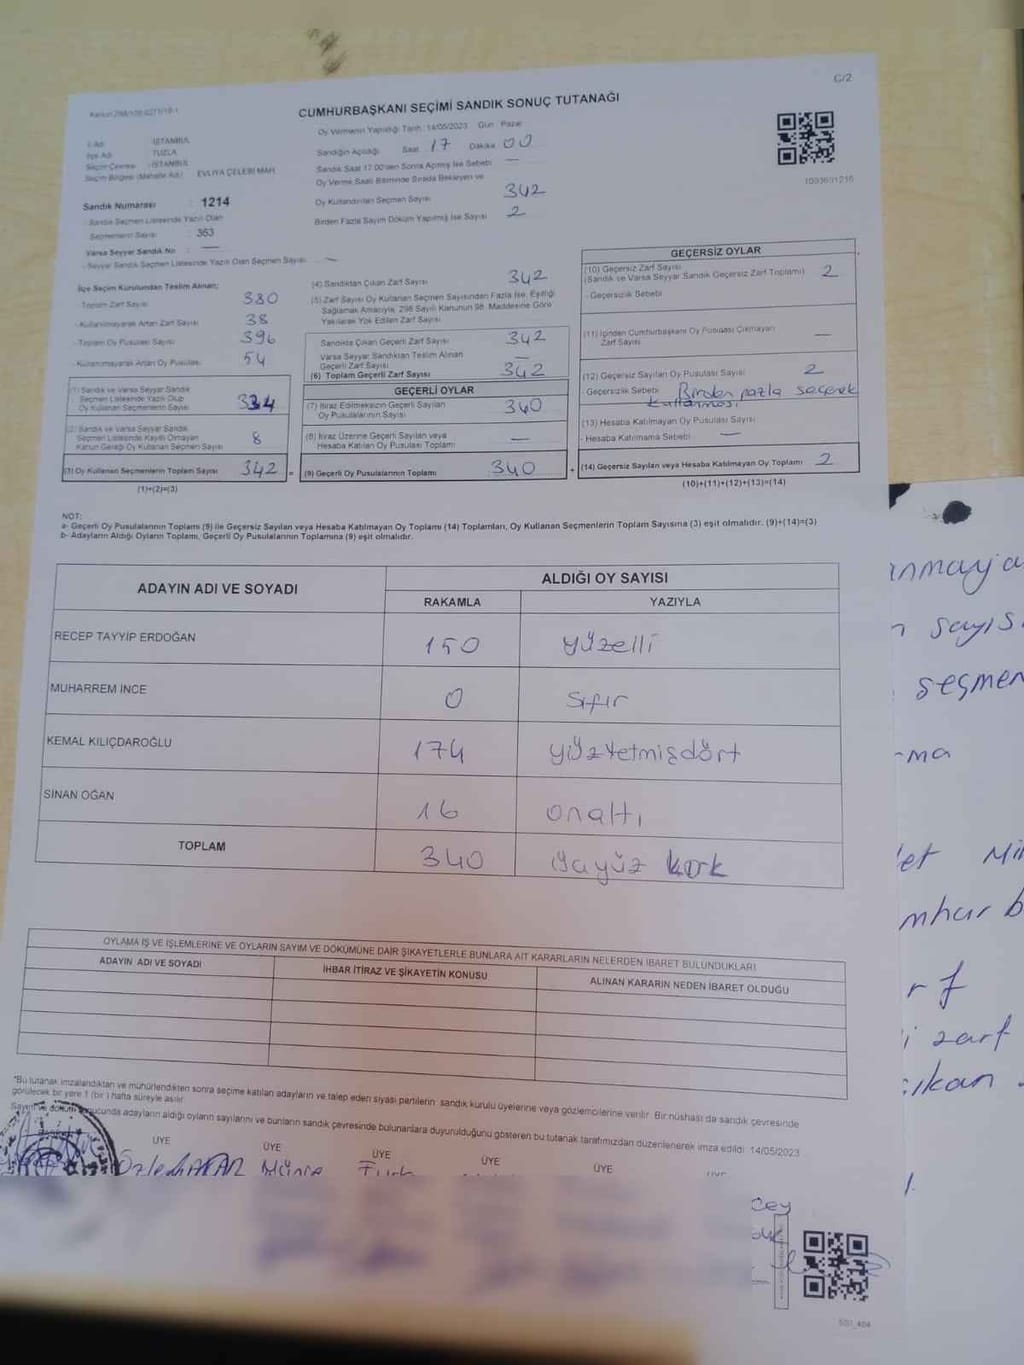 C/2
CUMHURBAŞKANI SEÇİMİ SANDIK SONUÇ TUTANAĞI
Oy Vermenin Yapıldığı Tarih : 14/05/2023 Gün : Pazar
İl Adı : İSTANBUL
İlçe Adı : TUZLA
Seçim Çevresi : İSTANBUL
Seçim Bölgesi (Mahalle Adı) : EVLİYA ÇELEBİ MAH.
Sandık Numarası : 1214
Sandık Seçmen Listesinde Yazılı Olan
Seçmenlerin Sayısı : 363
Varsa Seyyar Sandık No : —
Seyyar Sandık Seçmen Listesinde Yazılı Olan Seçmen Sayısı : —
Sandığın Açıldığı Saat 17 Dakika 00
Sandık Saat 17:00'den Sonra Açılmış İse Sebebi —
Oy Verme Saati Bitiminde Sırada Bekleyen ve
Oy Kullandırılan Seçmen Sayısı 342
Birden Fazla Sayım Döküm Yapılmış İse Sayısı 2
1093691216
İlçe Seçim Kurulundan Teslim Alınan;
- Toplam Zarf Sayısı 380
- Kullanılmayarak Artan Zarf Sayısı 38
- Toplam Oy Pusulası Sayısı 396
- Kullanılmayarak Artan Oy Pusulası 54
(1) Sandık ve Varsa Seyyar Sandık
Seçmen Listesinde Yazılı Olup
Oy Kullanan Seçmenlerin Sayısı 334
(2) Sandık ve Varsa Seyyar Sandık
Seçmen Listesinde Kayıtlı Olmayan
Kanun Gereği Oy Kullanan Seçmen Sayısı 8
(3) Oy Kullanan Seçmenlerin Toplam Sayısı 342 =
(1)+(2)=(3)
(4) Sandıktan Çıkan Zarf Sayısı 342
(5) Zarf Sayısı Oy Kullanan Seçmen Sayısından Fazla İse, Eşitliği
Sağlamak Amacıyla, 298 Sayılı Kanunun 98. Maddesine Göre
Yakılarak Yok Edilen Zarf Sayısı
Sandıkta Çıkan Geçerli Zarf Sayısı 342
Varsa Seyyar Sandıktan Teslim Alınan
Geçerli Zarf Sayısı —
(6) Toplam Geçerli Zarf Sayısı 342
GEÇERLİ OYLAR
(7) İtiraz Edilmeksizin Geçerli Sayılan
Oy Pusulalarının Sayısı 340
(8) İtiraz Üzerine Geçerli Sayılan veya
Hesaba Katılan Oy Pusulası Toplamı —
(9) Geçerli Oy Pusulalarının Toplamı 340 +
GEÇERSİZ OYLAR
(10) Geçersiz Zarf Sayısı
(Sandık ve Varsa Seyyar Sandık Geçersiz Zarf Toplamı) 2
- Geçersizlik Sebebi
(11) İçinden Cumhurbaşkanı Oy Pusulası Çıkmayan
Zarf Sayısı —
(12) Geçersiz Sayılan Oy Pusulası Sayısı 2
Geçersizlik Sebebi Birden fazla seçenek
kullanması
(13) Hesaba Katılmayan Oy Pusulası Sayısı
- Hesaba Katılmama Sebebi —
(14) Geçersiz Sayılan veya Hesaba Katılmayan Oy Toplamı 2
(10)+(11)+(12)+(13)=(14)
NOT:
a- Geçerli Oy Pusulalarının Toplamı (9) ile Geçersiz Sayılan veya Hesaba Katılmayan Oy Toplamı (14) Toplamları, Oy Kullanan Seçmenlerin Toplam Sayısına (3) eşit olmalıdır. (9)+(14)=(3)
b- Adayların Aldığı Oyların Toplamı, Geçerli Oy Pusulalarının Toplamına (9) eşit olmalıdır.
ADAYIN ADI VE SOYADI ALDIĞI OY SAYISI
RAKAMLA YAZIYLA
RECEP TAYYİP ERDOĞAN 150 yüzelli
MUHARREM İNCE 0 sıfır
KEMAL KILIÇDAROĞLU 174 yüzyetmişdört
SİNAN OĞAN 16 onaltı
TOPLAM 340 üçyüz kırk
OYLAMA İŞ VE İŞLEMLERİNE VE OYLARIN SAYIM VE DÖKÜMÜNE DAİR ŞİKAYETLERLE BUNLARA AİT KARARLARIN NELERDEN İBARET BULUNDUKLARI
ADAYIN ADI VE SOYADI İHBAR İTİRAZ VE ŞİKAYETİN KONUSU ALINAN KARARIN NEDEN İBARET OLDUĞU
*Bu tutanak imzalandıktan ve mühürlendikten sonra seçime katılan adayların ve talep eden siyasi partilerin sandık kurulu üyelerine veya gözlemcilerine verilir. Bir nüshası da sandık çevresinde
görülecek bir yere 1 (bir) hafta süreyle asılır.
Sayım ve döküm sonucunda adayların aldığı oyların sayılarını ve bunların sandık çevresinde bulunanlara duyurulduğunu gösteren bu tutanak tarafımızdan düzenlenerek imza edildi. 14/05/2023
ÜYE ÜYE ÜYE ÜYE ÜYE ÜYE
sayıs
seçmen
-ma
et
mhurb
zarf
çıkan